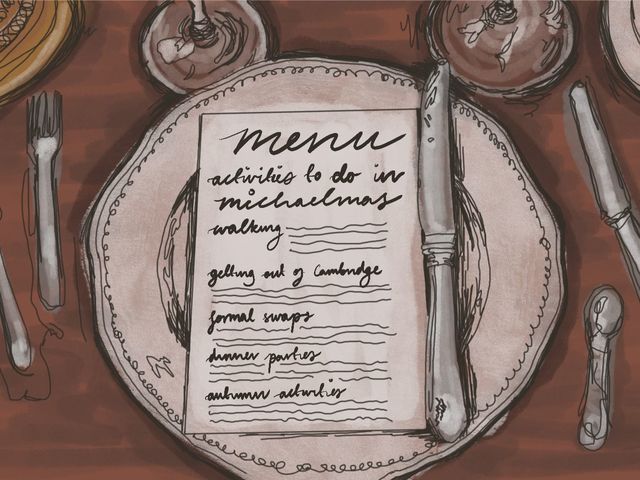 menu
activities to do in
michaelmas
walking
getting out of Cambridge
formal swaps
dinner parties
autumn activities